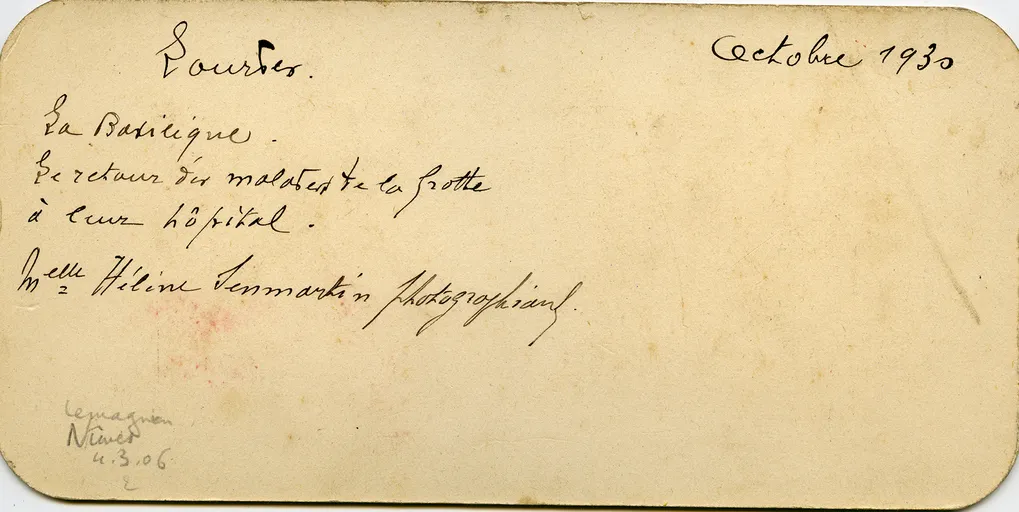 Lourdes.
Octobre 1930
La Basilique.
Le retour des malades de la Grotte
à leur hôpital.
Melle Hélène Senmartin photographiant.
Lemagnen
Nîmes
4.3.06
2